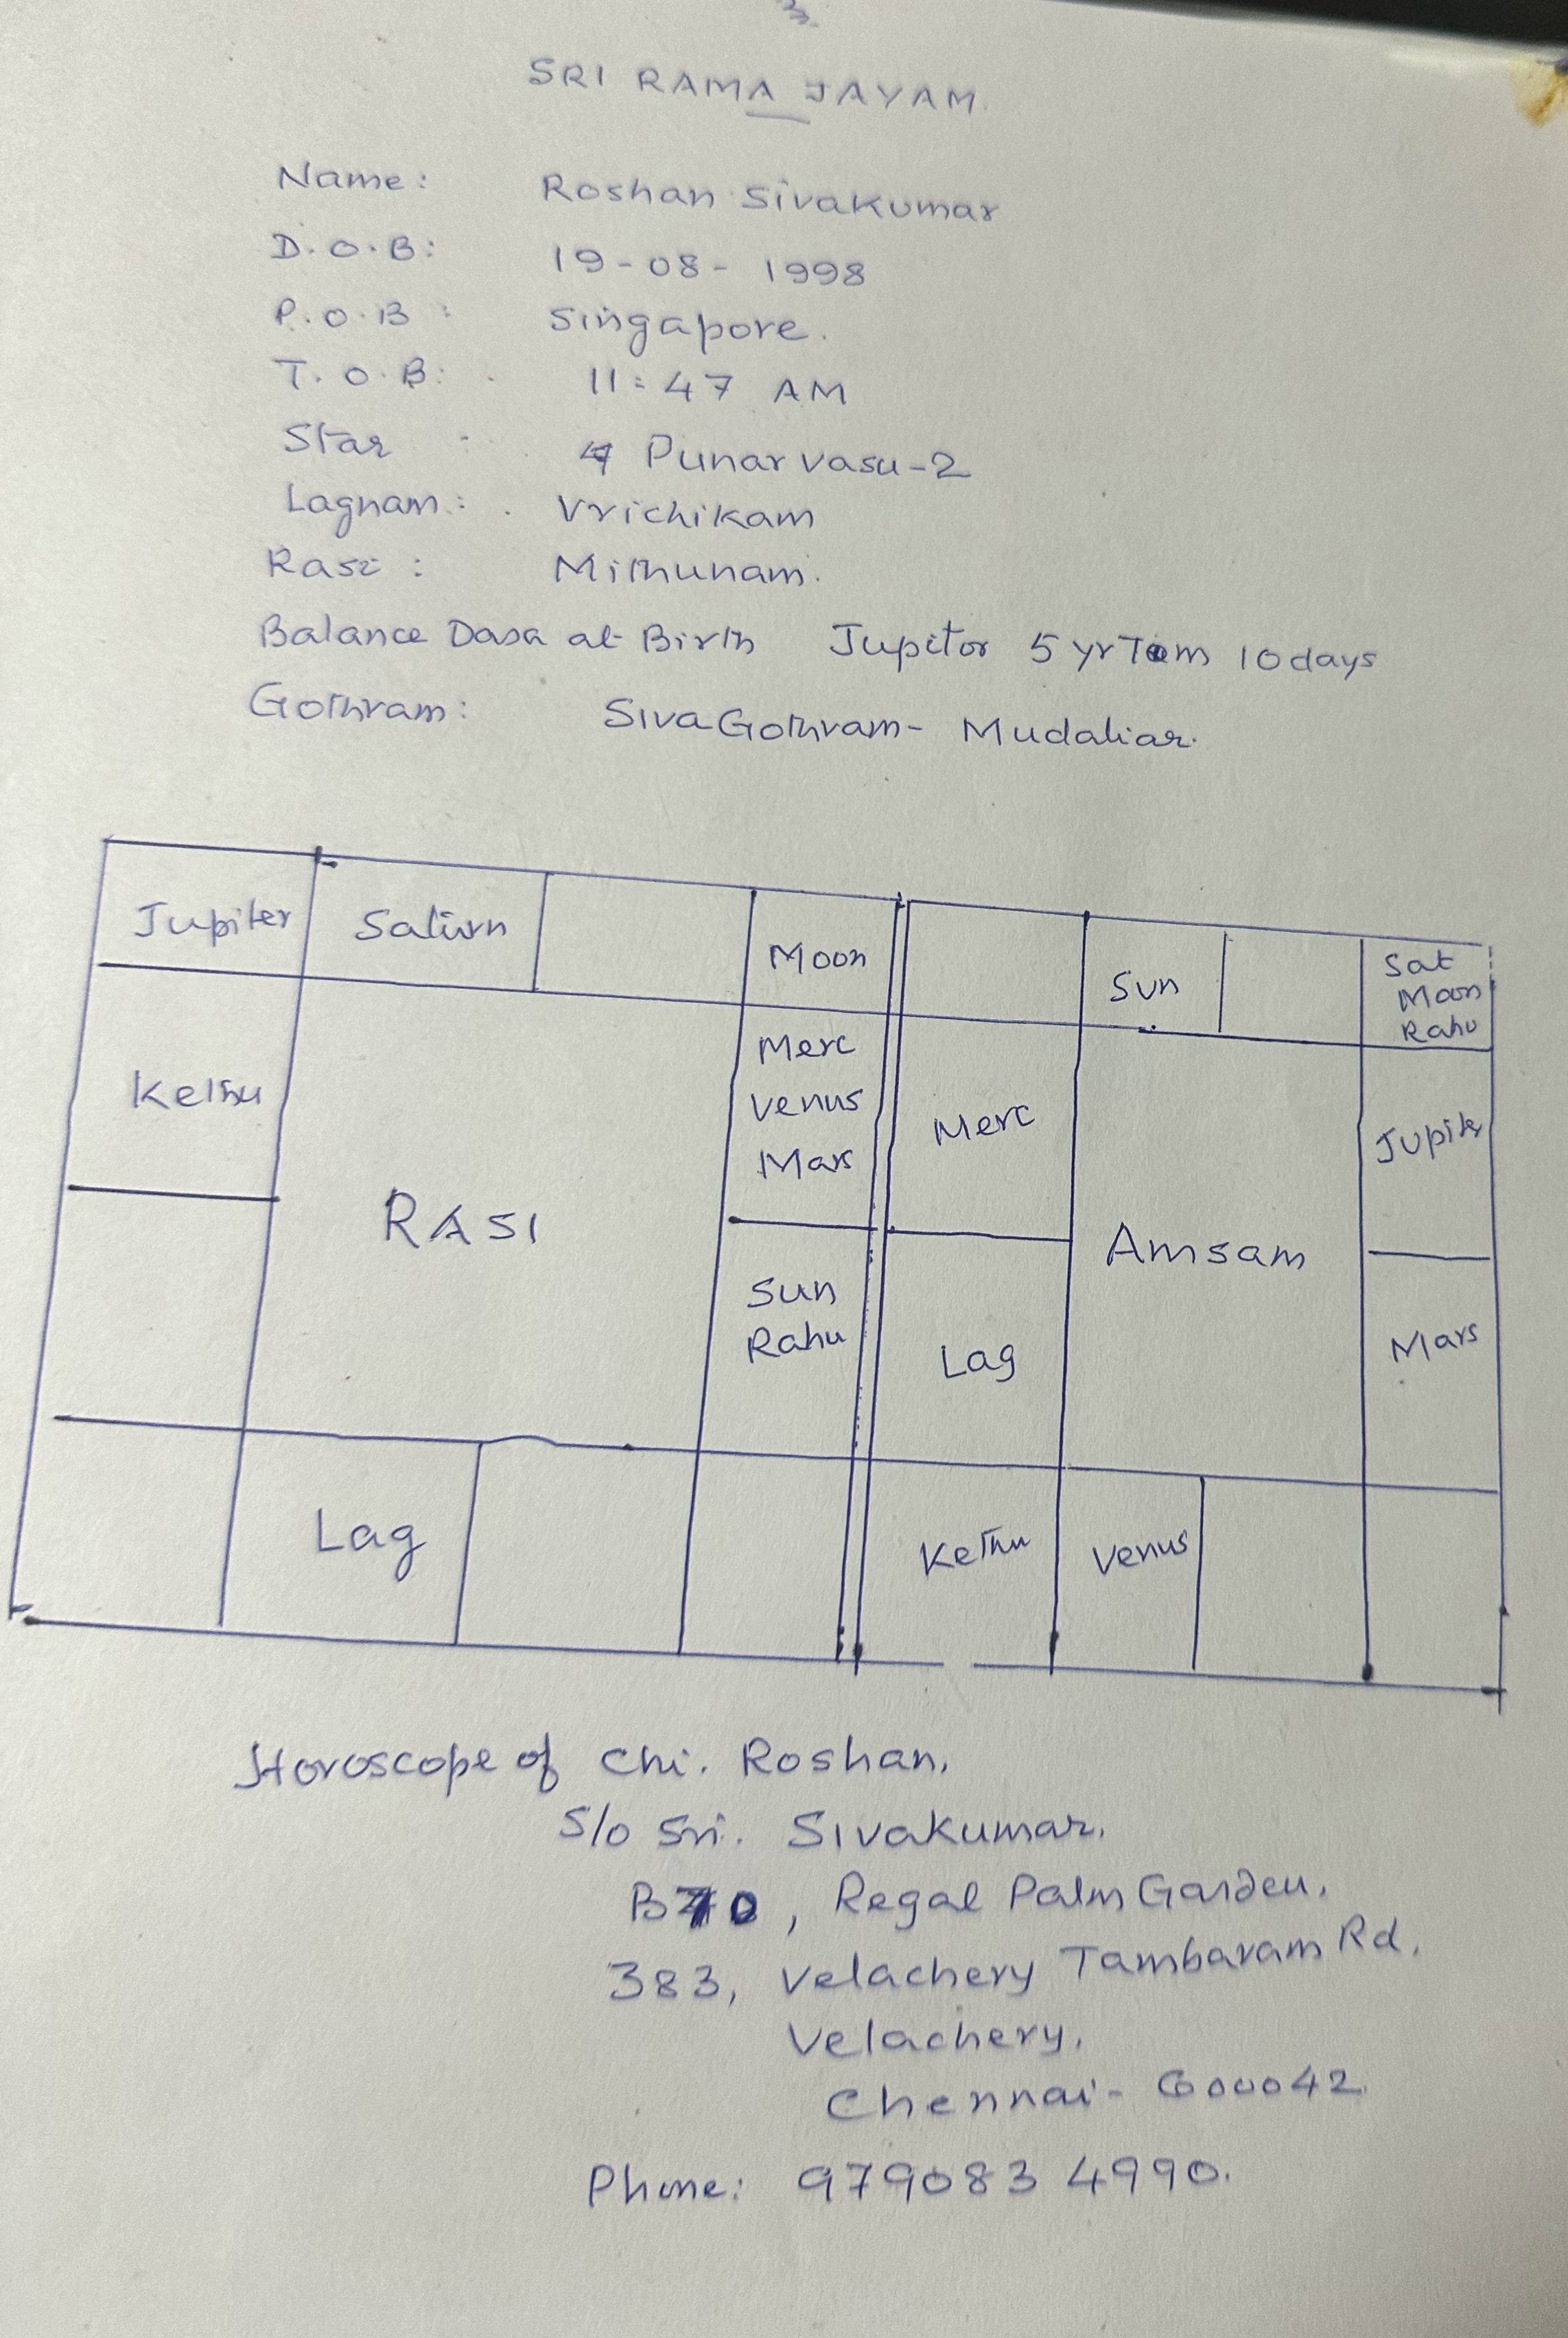 SRI RAMA JAYAM.
Name: Roshan Sivakumar
D.O.B: 19-08-1998
P.O.B: Singapore.
T.O.B: 11:47 AM
Star : Punarvasu-2
Lagnam: Vrichikam
Rasi: Mithunam.
Balance Dasa at Birth Jupitor 5 yr 7 m 10 days
Gothram: SivaGothram- Mudaliar.
Jupiter Saturn Moon
Kethu
RASI
Merc
Venus
Mars
Sun
Rahu
Lag
Sun
Sat
Moon
Rahu
Merc
Amsam
Jupiter
Lag
Mars
Kethu Venus
Horoscope of Chi. Roshan,
S/o Sri. Sivakumar,
Regal Palm Garden,
383, Velachery Tambaram Rd,
Velachery,
Chennai- 600042.
Phone: 979083 4990.